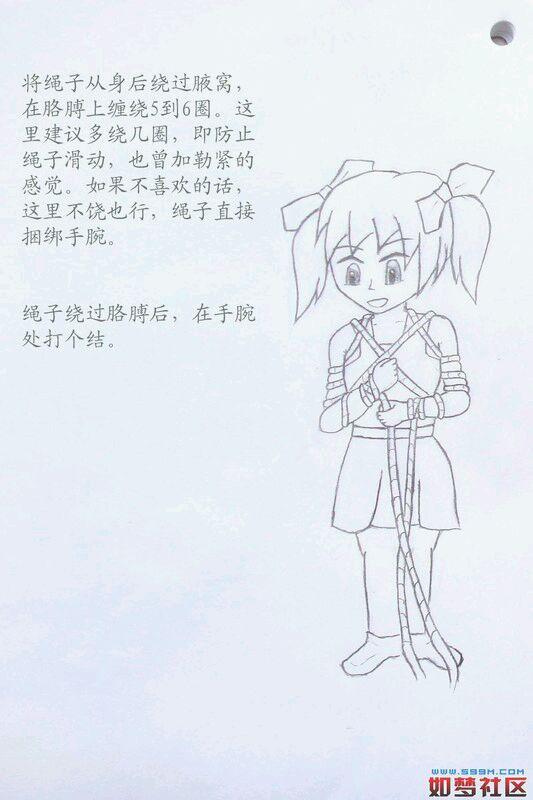 将绳子从身后绕过腋窝，
在胳膊上缠绕5到6圈。这
里建议多绕几圈，即防止
绳子滑动，也曾加勒紧的
感觉。如果不喜欢的话，
这里不饶也行，绳子直接
捆绑手腕。
绳子绕过胳膊后，在手腕
处打个结。
www.599M.com
如梦社区